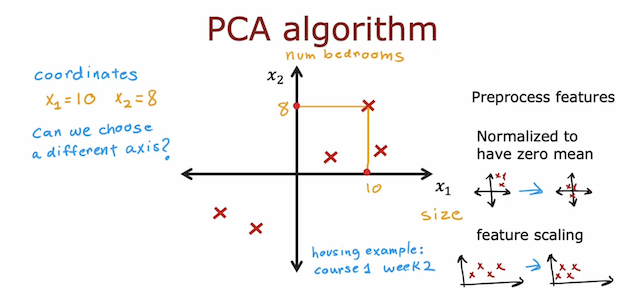 PCA algorithm
num bedrooms
coordinates
x₁=10 x₂=8
can we choose
a different axis?
x₂
8
10
x₁
size
housing example:
course 1 week 2
Preprocess features
Normalized to
have zero mean
feature scaling